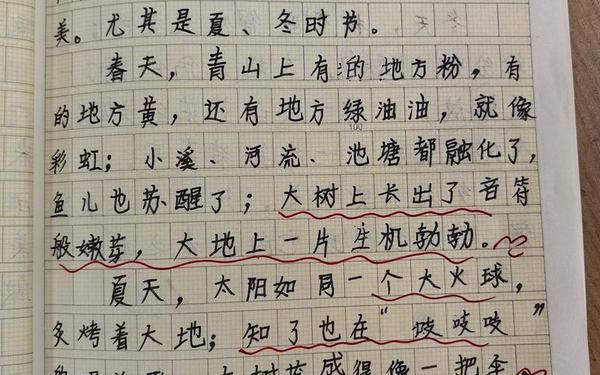 美。尤其是夏、冬时节。
春天，青山上有的地方粉，有
的地方黄，还有地方绿油油，就像
100
彩虹；小溪、河流、池塘都融化了，
鱼儿也苏醒了；大树上长出了音符
般嫩芽，大地上一片生机勃勃。
夏天，太阳如同一个大火球，
炙烤着大地；知了也在“吱吱吱”
成得像一把伞